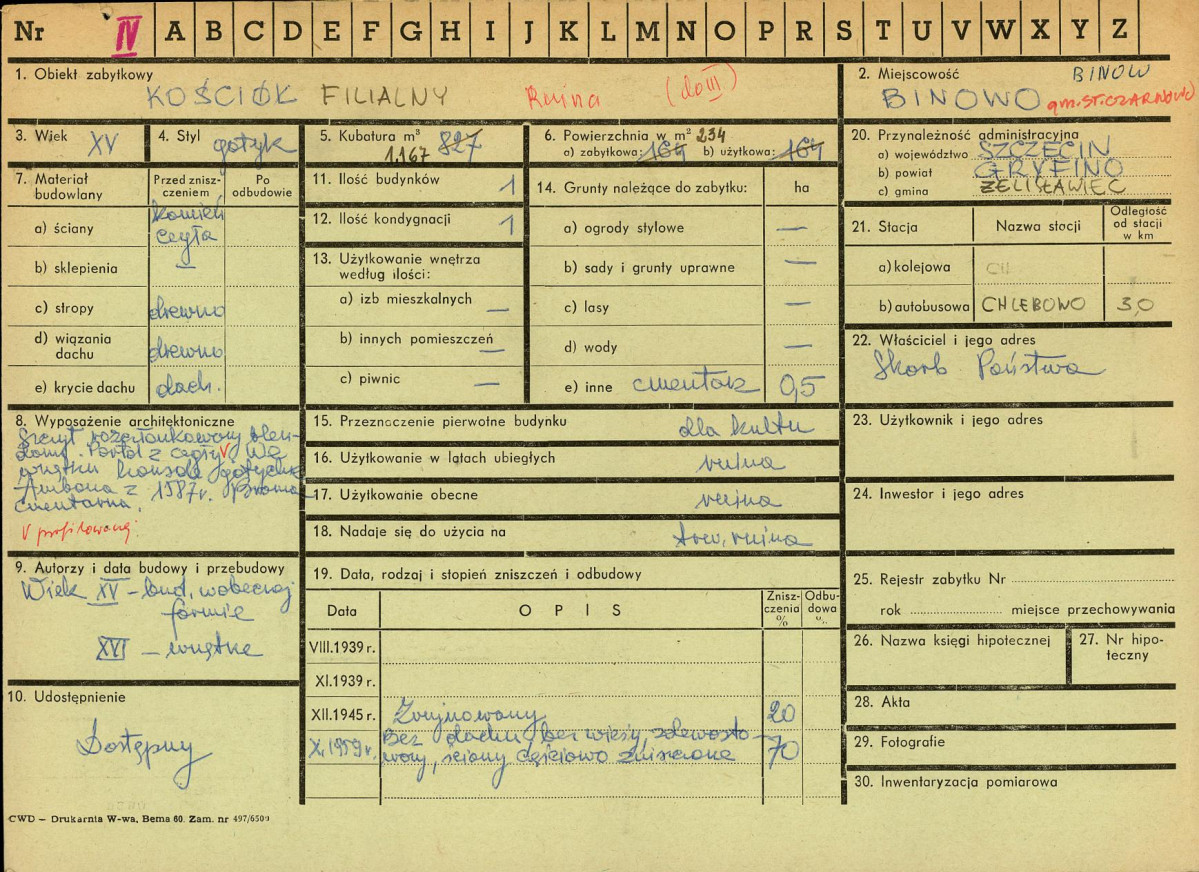 Nr IV A B C D E F G H I J K L M N O P R S T U V W X Y Z
1. Obiekt zabytkowy
KOŚCIÓŁ FILIALNY Ruina (do III)
2. Miejscowość BINÓW
BINOWO gm. ST. CZARNOWO
3. Wiek XV
4. Styl gotyk
5. Kubatura m³ 827
1.167
6. Powierzchnia w m² 234
a) zabytkowa: 164 b) użytkowa: 164
20. Przynależność administracyjna
a) województwo SZCZECIN
b) powiat GRYFINO
c) gmina ŻELISŁAWIEC
7. Materiał budowlany
Przed zniszczeniem
Po odbudowie
a) ściany kamień
cegła
b) sklepienia —
c) stropy drewno
d) wiązania dachu drewno
e) krycie dachu dach.
11. Ilość budynków 1
12. Ilość kondygnacji 1
13. Użytkowanie wnętrza
według ilości:
a) izb mieszkalnych —
b) innych pomieszczeń —
c) piwnic —
14. Grunty należące do zabytku: ha
a) ogrody stylowe —
b) sady i grunty uprawne —
c) lasy —
d) wody —
e) inne cmentarz 0,5
21. Stacja
Nazwa stacji
Odległość
od stacji
w km
a) kolejowa
b) autobusowa CHLEBOWO 3,0
22. Właściciel i jego adres
Skarb Państwa
8. Wyposażenie architektoniczne
Szczyt rozczłonkowany blen-
dami. Portal z cegły V. We
wnętrzu konsole gotyckie
Ambona z 1587 r. Brama
cmentarna.
V profilowanej
15. Przeznaczenie pierwotne budynku dla kultu
16. Użytkowanie w latach ubiegłych ruina
17. Użytkowanie obecne ruina
18. Nadaje się do użycia na trw. ruina
23. Użytkownik i jego adres
24. Inwestor i jego adres
9. Autorzy i data budowy i przebudowy
Wiek XV – bud. w obecnej
formie
XVI – wnętrze
10. Udostępnienie
Dostępny
19. Data, rodzaj i stopień zniszczeń i odbudowy
Data
O P I S
Znisz-
czenia
%
Odbu-
dowa
%
VIII.1939 r.
XI.1939 r.
XII.1945 r. Zrujnowany 20
X.1959 r. Bez dachu, bez wieży, zdewasto-
wany, ściany częściowo zniszczone 70
25. Rejestr zabytku Nr
rok miejsce przechowywania
26. Nazwa księgi hipotecznej
27. Nr hipo-
teczny
28. Akta
29. Fotografie
30. Inwentaryzacja pomiarowa
CWD – Drukarnia W-wa, Bema 60. Zam. nr 497/6509